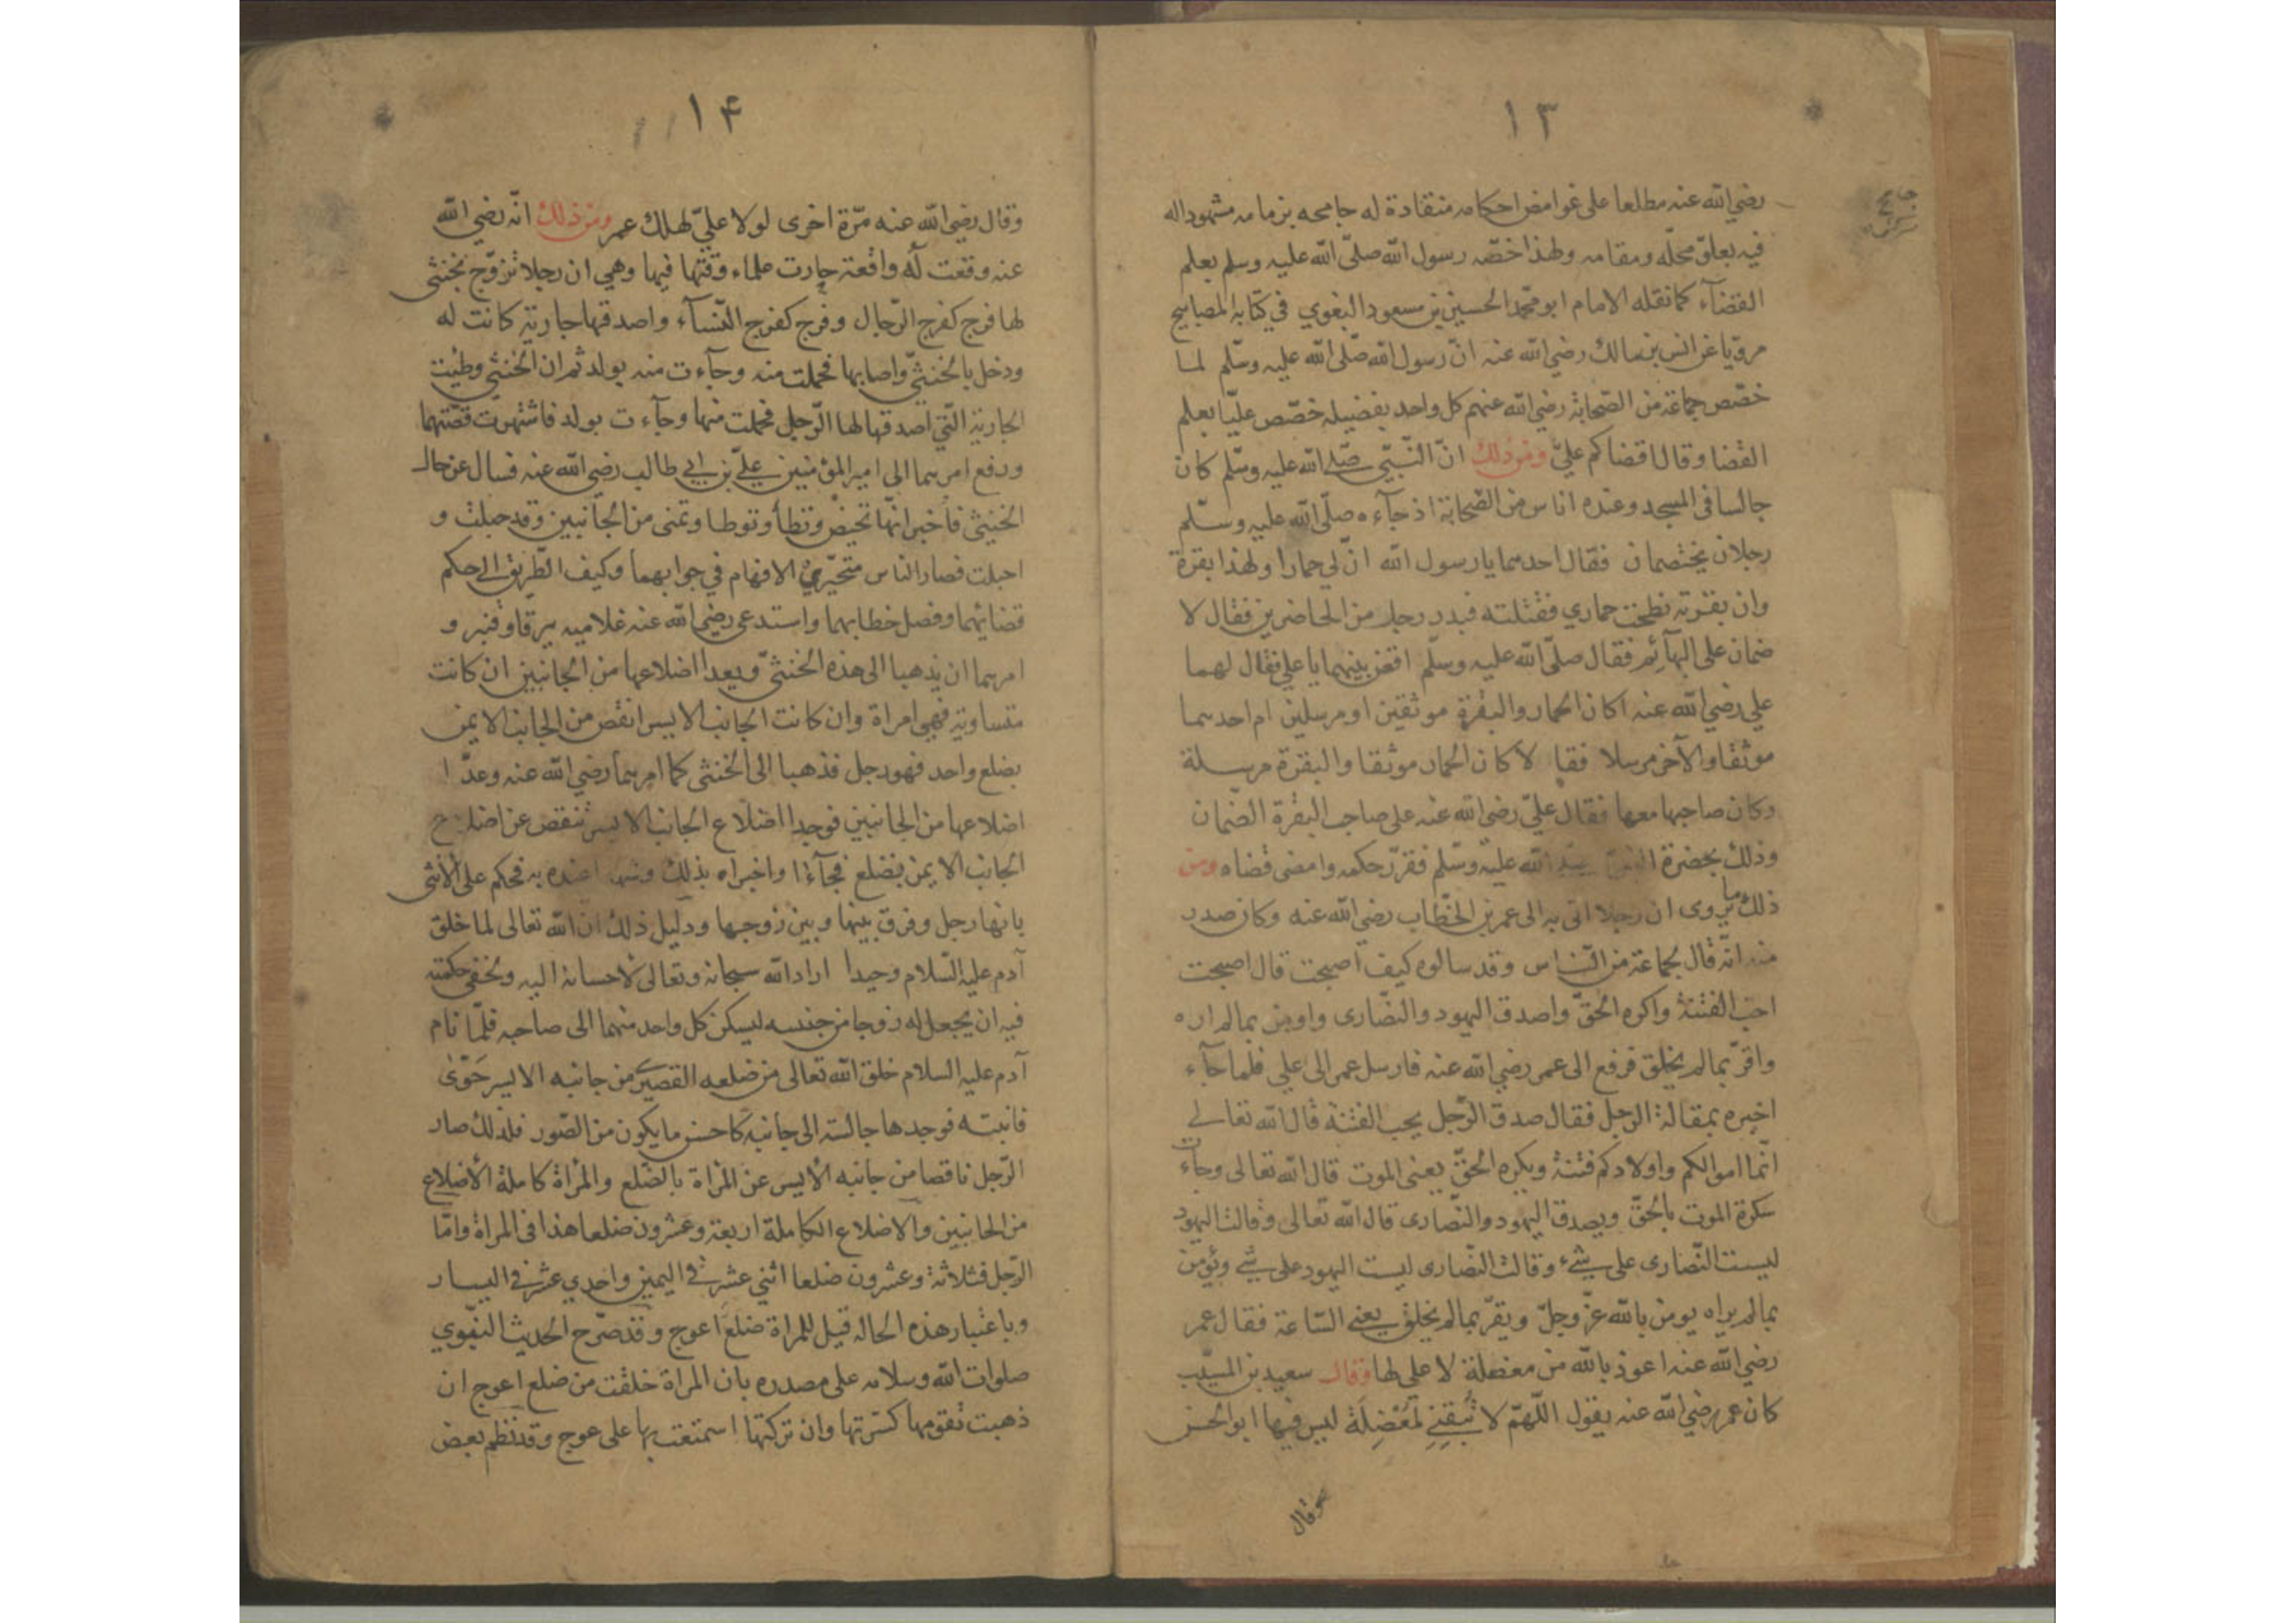 ١٣
رضي الله عنه مطلعا على غوامض احكامه منقادة له جامحه بزمامه مشهودا له
فيه بعلوّ محلّه ومقامه ولهذا خصّه رسول الله صلّى الله عليه وسلم بعلم
القضآء كما نقله الامام ابو محمّد الحسين بن مسعود البغوي في كتابه المصابيح
مرويا عن انس بن مالك رضي الله عنه انّ رسول الله صلّى الله عليه وسلّم لما
خصّص جماعة من الصّحابة رضي الله عنهم كل واحد بفضيلة خصّص عليّا بعلم
القضا وقال اقضاكم عليّ ومن ذلك انّ النّبيّ صلى الله عليه وسلّم كان
جالسا في المسجد وعنده اناس من الصّحابة اذ جآءه صلّى الله عليه وسلّم
رجلان يختصمان فقال احدهما يا رسول الله انّ لي حمارا ولهذا بقرة
وان بقرته نطحت حماري فقتلته فبدر رجل من الحاضرين فقال لا
ضمان على البهآئم فقال صلّى الله عليه وسلّم اقض بينهما يا علي فقال لهما
علي رضي الله عنه اكان الحمار والبقرة موثقين او مرسلين ام احدهما
موثقا والآخر مرسلا فقالا كان الحمار موثقا والبقرة مرسلة
وكان صاحبها معها فقال عليّ رضى الله عنه على صاحب البقرة الضّمان
وذلك بحضرة النبيّ صلى الله عليه وسّلم فقرّر حكمه وامضى قضاه ومن
ذلك ما يروى ان رجلا اتى به الى عمر بن الخطّاب رضي الله عنه وكان صدر
منه انّه قال لجماعة من النّاس وقد سالوه كيف اصبحت قال اصبحت
احب الفتنة واكره الحقّ واصدق اليهود والنّصارى واومن بما لم اره
واقرّ بما لم يخلق فرفع الى عمر رضي الله عنه فارسل عمر الى علي فلما جآء
اخبره بمقالة الرجل فقال صدق الرّجل يحب الفتنة قال الله تعالى
انّما اموالكم واولادكم فتنة ويكره الحقّ يعنى الموت قال الله تعالى وجآءت
سكرة الموت بالحقّ ويصدق اليهود والنّصارى قال الله تعالى وقالت اليهود
ليست النّصارى على شئء وقالت النّصارى ليست اليهود على شئ ويؤمن
بما لم يراه يومن بالله عزّ وجلّ ويقرّ بما لم يخلق يعنى السّاعة فقال عمر
رضي الله عنه اعوذ بالله من معضلة لا علي لها وقال سعيد بن المسيّب
كان عمر رضي الله عنه يقول اللّهمّ لا تُبقِنِي لمُعْضِلَة ليس فيها ابو الحسن
وقال
١۴
وقال رضي الله عنه مرّة اخرى لولا عليّ لهلك عمر ومن ذلك انّه رضي الله
عنه وقعت له واقعة حارت علماء وقتها فيها وهي ان رجلا تزوّج بخنثى
لها فرج كفرج الرّجال وفرج كفرج النّسآء واصدقها جارية كانت له
ودخل بالخنثيّ واصابها فحملت منه وجآءت منه بولد ثم ان الخنثي وطيئت
الجارية الّتي اصدقها لها الرّجل فحملت منها وجآءت بولد فاشتهرت قصّتهما
ورفع امرهما الى امير المؤمنين عليّ بن ابي طالب رضي الله عنه فسال عن حال
الخنيثى فاخبر انّها تحيض وتطأ وتوطا وتمنى من الجانبين وقد حبلت و
احبلت فصار النّاس متحيّري الافهام في جوابهما وكيف الطّريق الى حكم
قضائهما وفصل خطابهما واستدعى رضي الله عنه غلاميه يرقا وقنبر و
امرهما ان يذهبا الى هذه الخنثيّ ويعدا اضلاعها من الجانبين ان كانت
متساوية فهي امراة وان كانت الجانب الايسر انقص من الجانب الايمن
بضلع واحد فهو رجل فذهبا الى الخنثى كما امرهما رضي الله عنه وعدّا
اضلاعها من الجانبين فوجدا اضلاع الجانب الايسر تنقص عن اضلاع
الجانب الايمن بضلع فجآءا واخبراه بذلك وشهدا عنده به فحكم على الانثى
بانها رجل وفرق بينها وبين زوجها ودليل ذلك انّ الله تعالى لما خلق
آدم عليه السّلام وحيدا اراد الله سبحانه وتعالى لاحسانه اليه ولخفي حكمته
فيه ان يجعل له زوجا من جنسه ليسكن كل واحد منهما الى صاحبه فلمّا نام
آدم عليه السلام خلق الله تعالى من ضلعه القصيري من جانبه الايسر حَوّىٰ
فانبته فوجدها جالسة الى جانبه كاحسن ما يكون من الصّور فلذلك صار
الرّجل ناقصا من جانبه الأيسر عن المرأة بالضّلع والمرأة كاملة الأضلاع
من الجانبين والاضلاع الكاملة اربعة وعشرون ضلعا هذا فى المراة وامّا
الرّجل فثلاثة وعشرون ضلعا اثني عشر في اليمين واحدي عشر في اليسار
وباعتبار هذه الحالة قيل للمراة ضلعَ اعوج وقد صرّح الحديث النبوّي
صلوات الله وسلامه على مصدره بان المراة خلقت من ضلع اعوج ان
ذهبت تقومها كسرتها وان تركتها استمتعت بها على عوج وقد نظم بعض